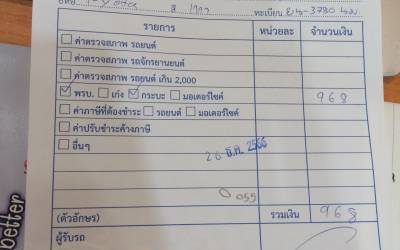 ทะเบียน
รายการ หน่วยละ จำนวนเงิน
ค่าตรวจสภาพ รถยนต์
ค่าตรวจสภาพ รถจักรยานยนต์
ค่าตรวจสภาพ รถยนต์ เกิน 2,000
พรบ. เก๋ง กระบะ มอเตอร์ไซค์ 968
ค่าภาษีที่ต้องชำระ รถยนต์ มอเตอร์ไซค์
ค่าปรับชำระค้างภาษี
อื่นๆ
26 ธ.ค. 2566
055
(ตัวอักษร) รวมเงิน 968
ผู้รับรถ
better